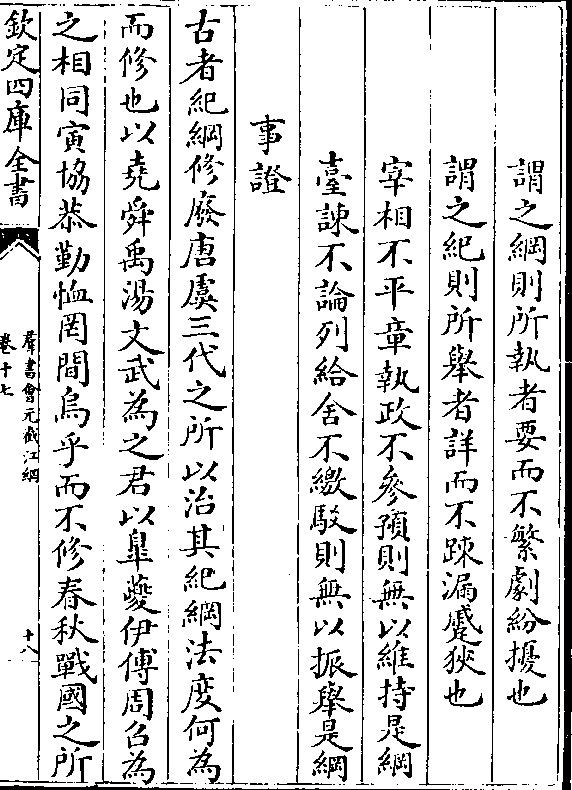 謂之綱則所執者要而不繁劇紛擾也
謂之紀則所舉者詳而不踈漏蹙狹也
宰相不平章執政不參預則無以維持是綱
臺諫不論列給舍不繳駮則無以振舉是綱
事證
古者紀綱修廢唐虞三代之所以治其紀綱法度何為
而修也以堯舜禹湯文武為之君以臯䕫伊傅周召為
之相同寅協恭勤恤罔間烏乎而不修春秋戰國之所
欽定四庫全書
羣書會元截江綱
卷十七
十八